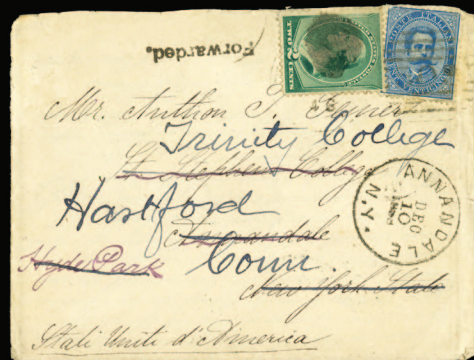 Forwarded.
TWO CENTS
Mr. Anthon T.
Trinity College
St. Stephen's College
Hartford
Annandale
Hyde Park
Conn.
New York State
Stati Uniti d'America
ANNANDALE
N.Y.
DEC
10